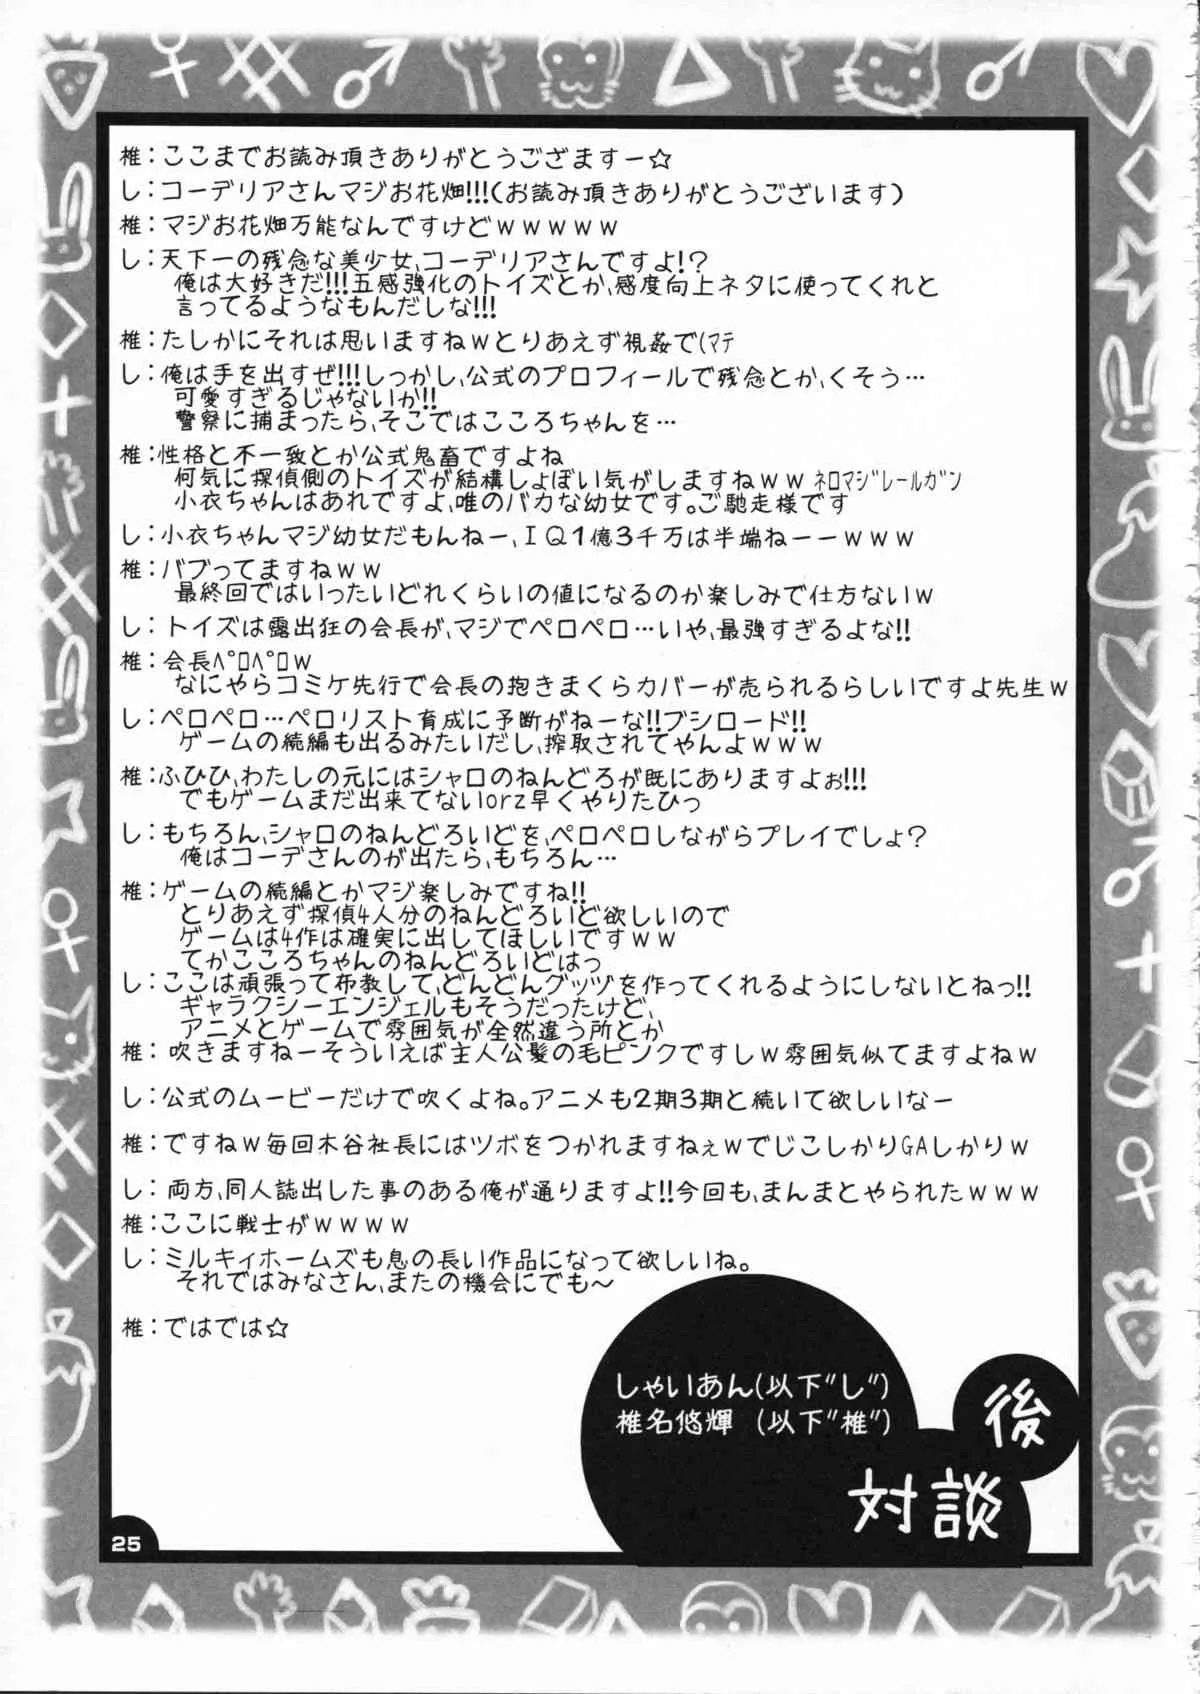 椎：ここまでお読み頂きありがとうござますー☆
し：コーデリアさんマジお花畑!!!(お読み頂きありがとうございます)
椎：マジお花畑万能なんですけどｗｗｗｗｗ
し：天下一の残念な美少女、コーデリアさんですよ!?
俺は大好きだ!!!五感強化のトイズとか、感度向上ネタに使ってくれと
言ってるようなもんだしな!!!
椎：たしかにそれは思いますねｗとりあえず視姦で(ﾏﾃ
し：俺は手を出すぜ!!!しっかし、公式のプロフィールで残念とか、くそう…
可愛すぎるじゃないか!!
警察に捕まったら、そこではこころちゃんを…
椎：性格と不一致とか公式鬼畜ですよね
何気に探偵側のトイズが結構しょぼい気がしますねｗｗ ﾈﾛﾏｼﾞﾚｰﾙｶﾞﾝ
小衣ちゃんはあれですよ、唯のバカな幼女です。ご馳走様です
し：小衣ちゃんマジ幼女だもんねー、ＩＱ１億３千万は半端ねーーｗｗｗ
椎：バブってますねｗｗ
最終回ではいったいどれくらいの値になるのか楽しみで仕方ないｗ
し：トイズは露出狂の会長が、マジでペロペロ…いや、最強すぎるよな!!
椎：会長ﾍﾟﾛﾍﾟﾛｗ
なにやらコミケ先行で会長の抱きまくらカバーが売られるらしいですよ先生ｗ
し：ペロペロ…ペロリスト育成に予断がねーな!!ブシロード!!
ゲームの続編も出るみたいだし、搾取されてやんよｗｗｗ
椎：ふひひ、わたしの元にはシャロのねんどろが既にありますよぉ!!!
でもゲームまだ出来てないorz早くやりたひっ
し：もちろん、シャロのねんどろいどを、ペロペロしながらプレイでしょ?
俺はコーデさんのが出たら、もちろん…
椎：ゲームの続編とかマジ楽しみですね!!
とりあえず探偵4人分のねんどろいど欲しいので
ゲームは4作は確実に出してほしいですｗｗ
てかこころちゃんのねんどろいどはっ
し：ここは頑張って布教して、どんどんグッヅを作ってくれるようにしないとねっ!!
ギャラクシーエンジェルもそうだったけど、
アニメとゲームで雰囲気が全然違う所とか
椎：吹きますねーそういえば主人公髪の毛ピンクですしｗ雰囲気似てますよねｗ
し：公式のムービーだけで吹くよね。アニメも２期３期と続いて欲しいなー
椎：ですねｗ毎回木谷社長にはツボをつかれますねぇｗでじこしかりGAしかりｗ
し：両方、同人誌出した事のある俺が通りますよ!!今回も、まんまとやられたｗｗｗ
椎：ここに戦士がｗｗｗｗ
し：ミルキィホームズも息の長い作品になって欲しいね。
それではみなさん、またの機会にでも〜
椎：ではでは☆
しゃいあん(以下"し")
椎名悠輝 (以下"椎")
後
対談
25